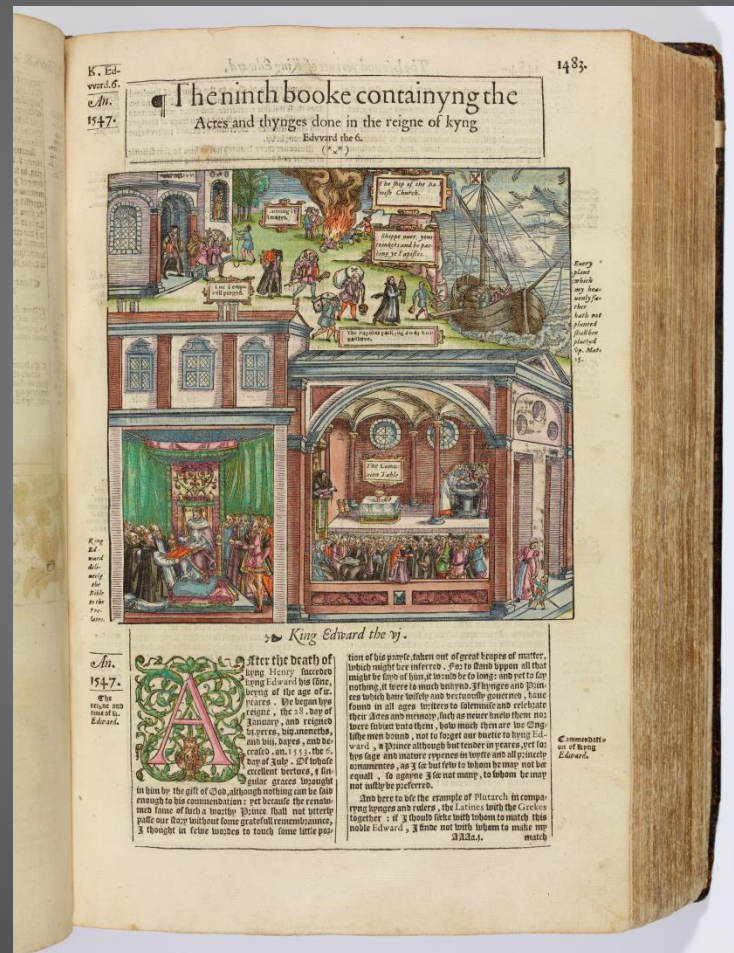 1483.
K. Ed-
vvard.6.
An.
1547.
¶ The ninth booke containyng the
Actes and thynges done in the reigne of kyng
Edvvard the 6.
The ship of the Ro-
mish Church.
burning of
Images.
Shippe over your
trinkets and be pac-
king ye Papistes.
The Temp-
ell purged.
The Papistes packyng away their
paltrye.
Every
plant
which
my hea-
uenly fa-
ther
hath not
planted
shalbee
plucked
vp. Mat.
15.
The Comu-
nion Table
King
Ed-
ward
deli-
uerig
the
Bible
to the
Pre-
lates.
King Edward the vj.
An.
1547.
The
reigne and
time of K.
Edward.
AFter the death of
kyng Henry succeded
kyng Edward his sōne,
beyng of the age of ix.
yeares. He began hys
reigne, the 28. day of
Ianuary, and reigned
vi. yeres, viij. moneths,
and viij. dayes, and de-
ceased. an. 1553. the 6.
day of Iuly. Of whose
excellent vertues, & sin-
gular graces wrought
in him by the gift of God, although nothing can be said
enough to his commendation: yet because the renow-
med fame of such a worthy Prince shall not vtterly
passe our story without some gratefull remembraunce,
I thought in fewe wordes to touch some little por-
tion of his prayse, taken out of great heapes of matter,
which might bee inferred. For to stand vppon all that
might be sayd of him, it would be to long: and yet to say
nothing, it were to much vnkynd. If kynges and Prin-
ces which haue wisely and vertuously gouerned, haue
found in all ages writers to solemnise and celebrate
their Actes and memory, such as neuer knew them nor
were subiect vnto them, how much then are we Eng-
lishe men bound, not to forget our duetie to kyng Ed-
ward, a Prince although but tender in yeares, yet for
hys sage and mature rypenes in wytte and all princely
ornamentes, as I see but few to whom he may not bee
equall, so agayne I see not many, to whom he may
not iustly be preferred.
Commendati-
on of kyng
Edward.
And here to vse the example of Plutarch in compa-
ryng kynges and rulers, the Latines with the Grekes
together: if I should seeke with whom to match this
noble Edward, I finde not with whom to make my
AAAa.j.
match